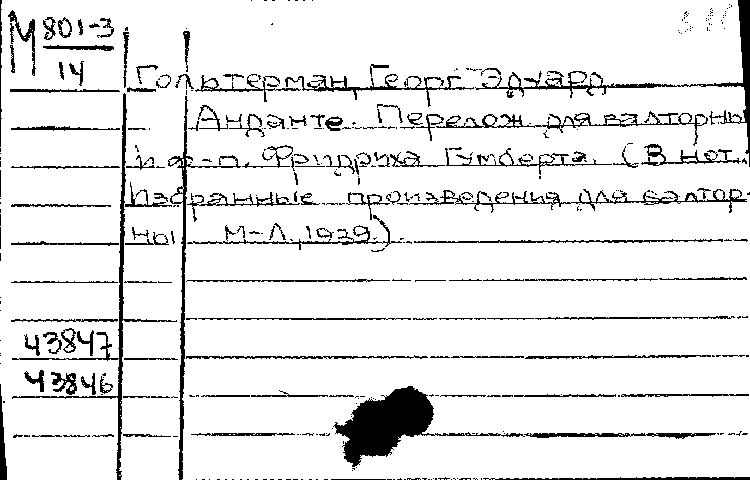 М 801-3
14
Гольтерман, Георг Эдуард
Анданте. Перелож для валторны
и ф-п. Фридриха Гумберта. (В нот.:
Избранные произведения для валтор-
ны М-Л, 1939.).
43847
43846